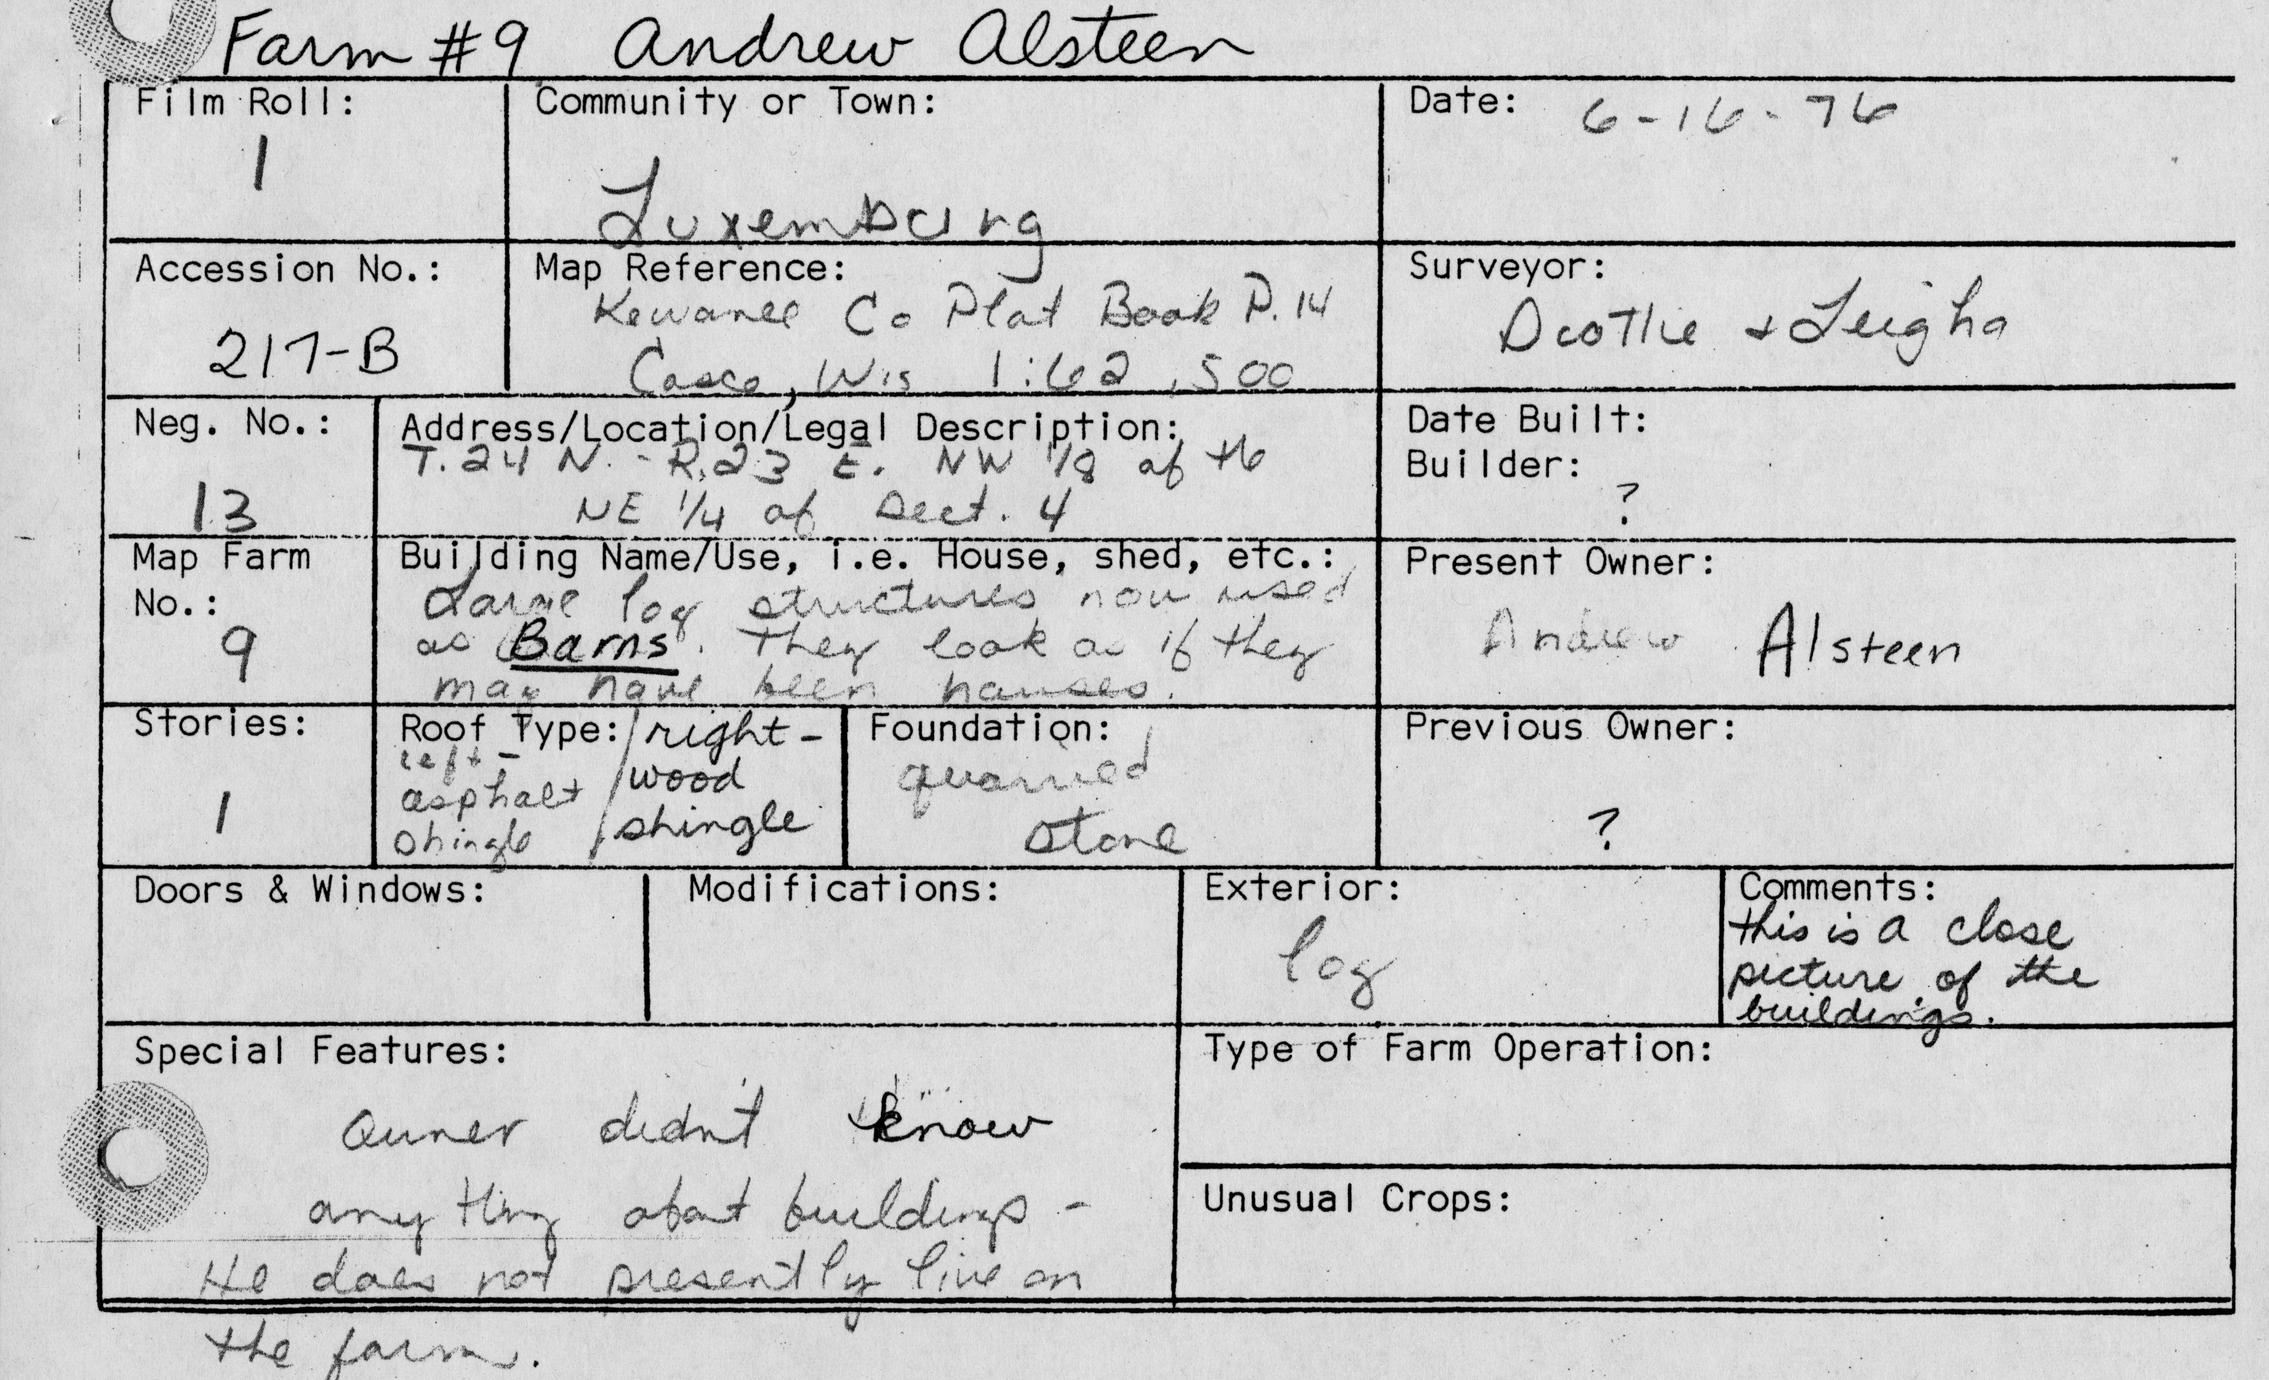 Farm #9 Andrew Alsteen
Film Roll:
1
Community or Town:
Luxemburg
Date: 6-16-76
Accession No.:
217-B
Map Reference:
Kewanee Co Plat Book P. 14
Casco, Wis 1:62,500
Surveyor:
Dottie + Leigha
Neg. No.:
13
Address/Location/Legal Description:
T.24 N. - R.23 E. NW 1/8 of the
NE 1/4 of Sect. 4
Date Built:
Builder:
?
Map Farm
No.:
9
Building Name/Use, i.e. House, shed, etc.:
Large log structures now used
as Barns. They look as if they
may have been houses.
Present Owner:
Andrew Alsteen
Stories:
1
Roof Type:
left -
asphalt
shingle
/ right -
wood
shingle
Foundation:
quarried
stone
Previous Owner:
?
Doors & Windows:
Modifications:
Exterior:
log
Comments:
this is a close
picture of the
buildings.
Special Features:
Owner didn't know
any thing about buildings -
He does not presently live on
the farm.
Type of Farm Operation:
Unusual Crops: